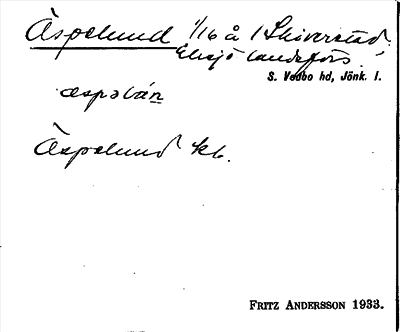 Äspelund 1/16 å 1 Skiverstad
Eksjö landsförs.
S. Vedbo hd, Jönk. l.
Äspelund kb.
FRITZ ANDERSSON 1933.